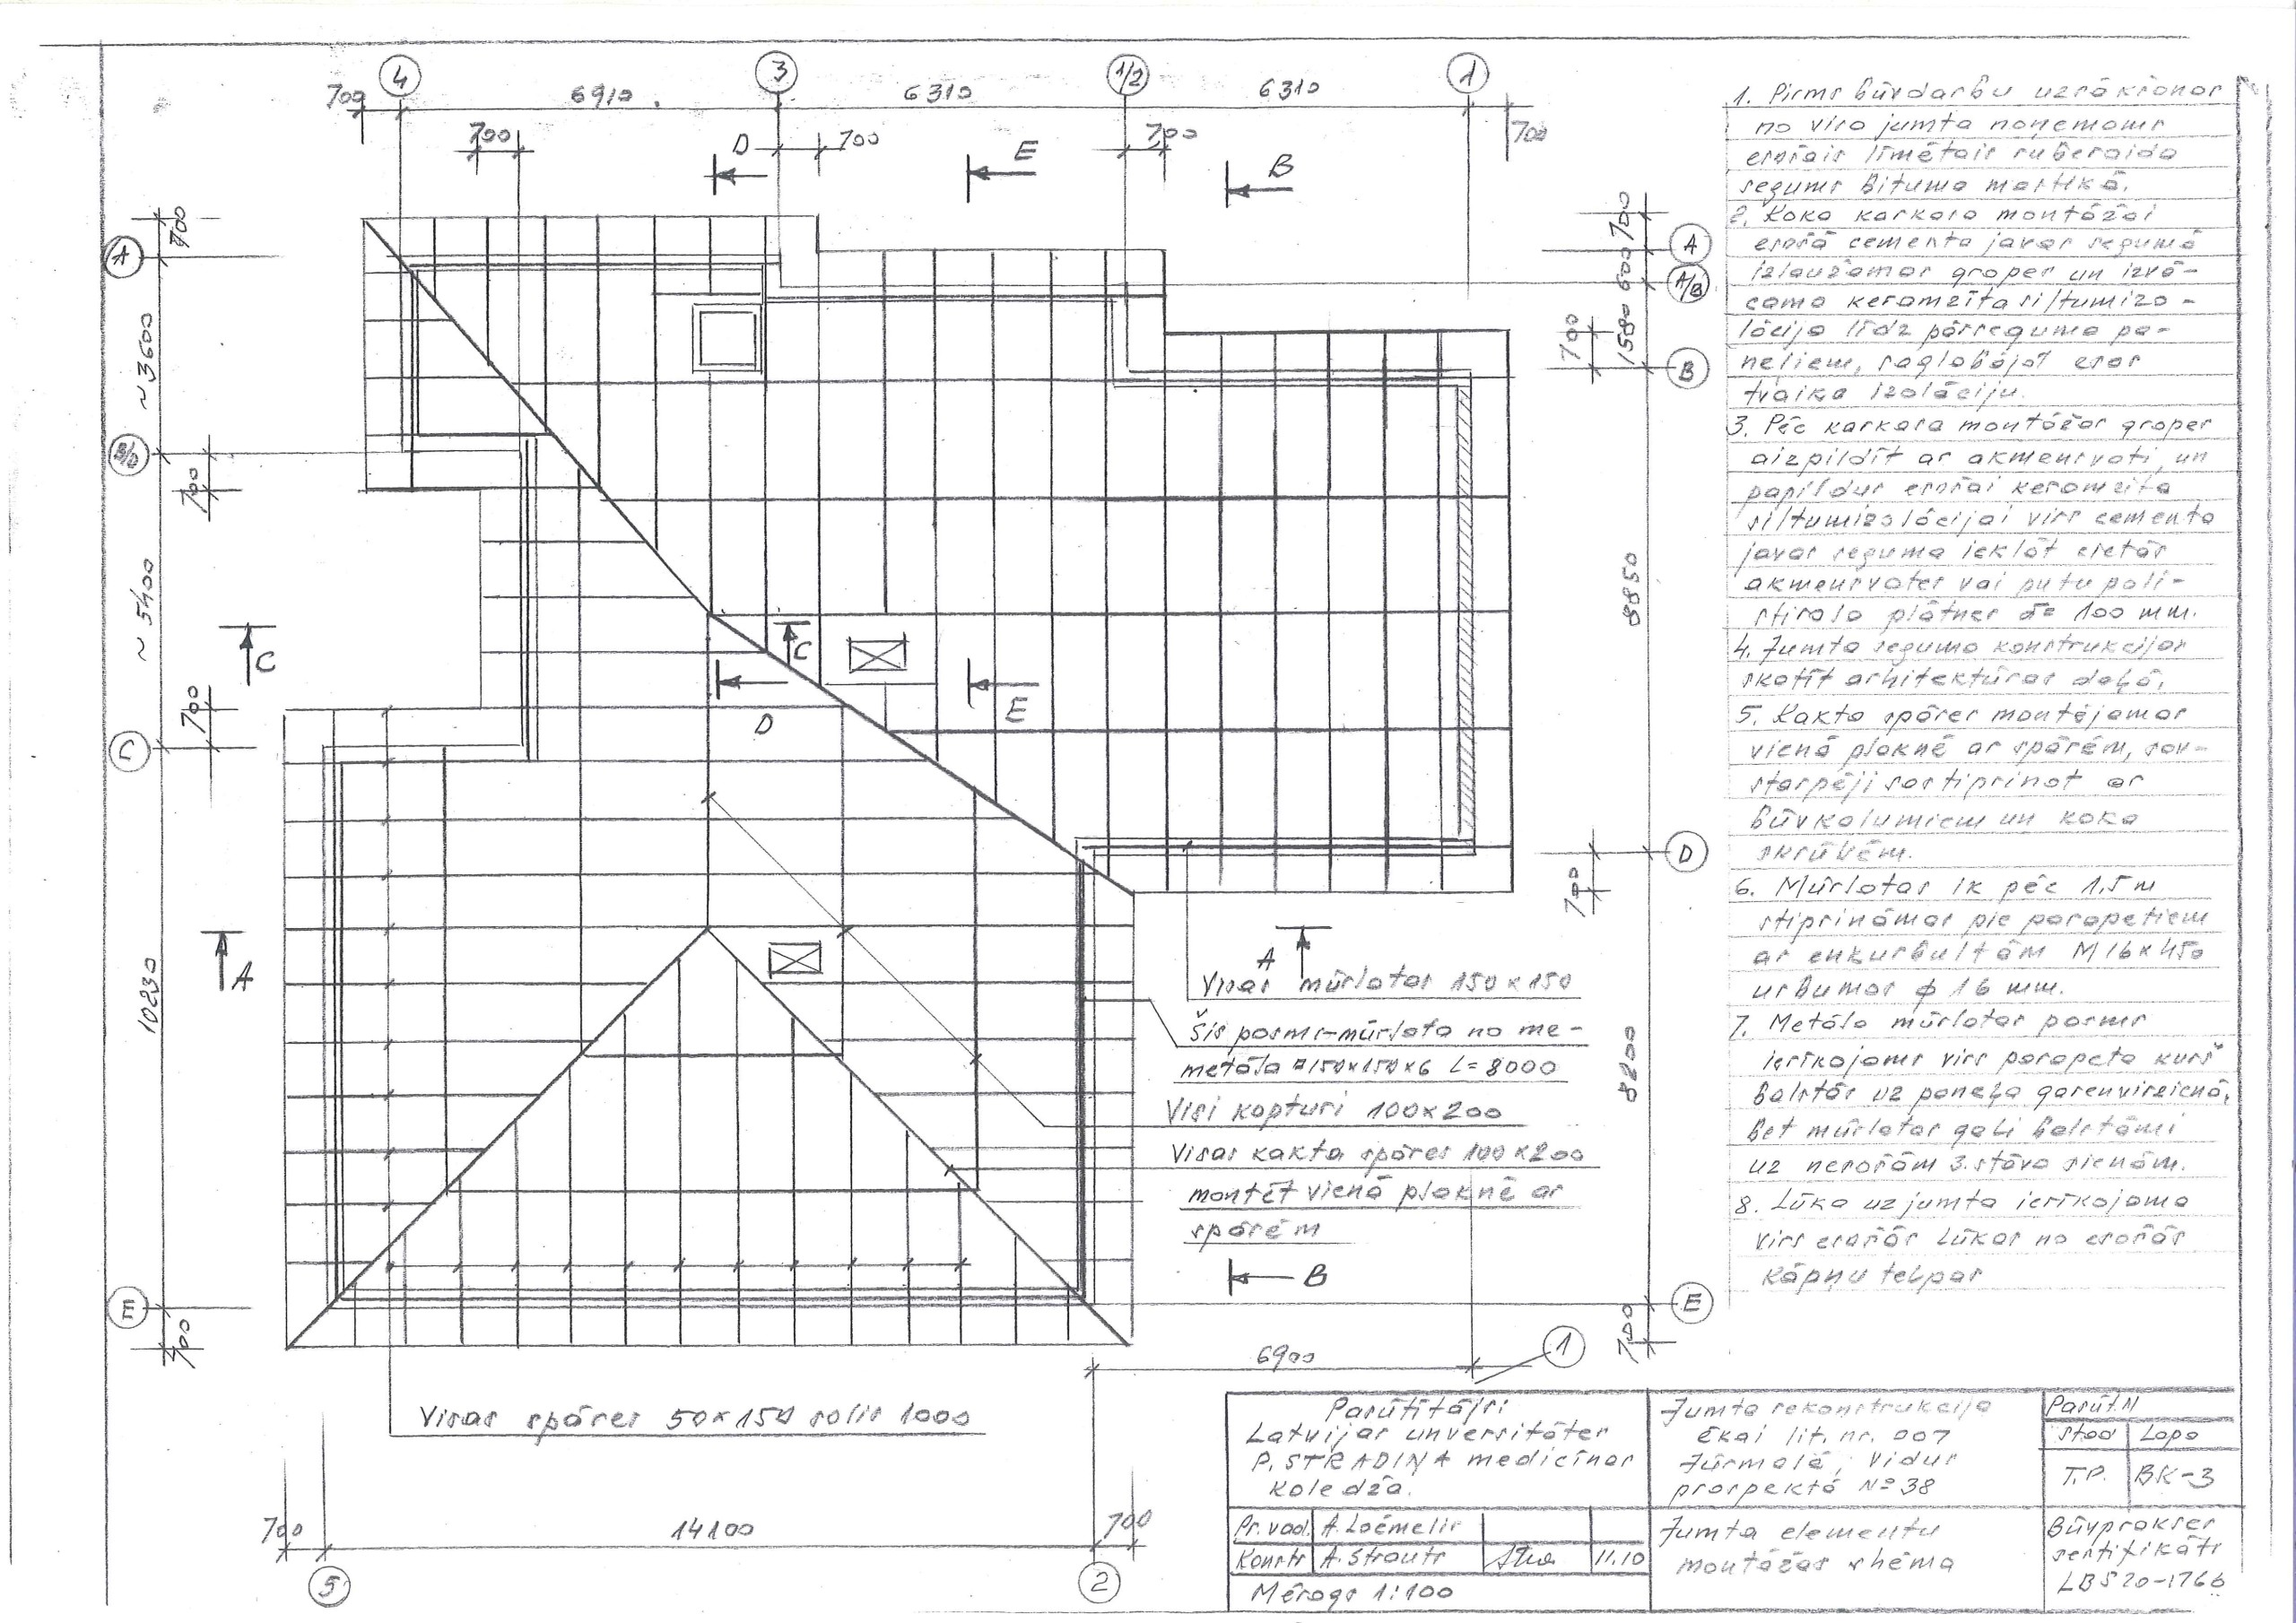 4
3
1/2
1
700
6910
6310
6310
700
700
D
700
E
700
B
700
A
~3600
B/D
700
~5400
C
700
C
10230
A
E
700
700
A
600
A/B
1580
700
B
8850
D
700
8200
E
700
C
D
E
A
Visas mūrlatas 150×150
Šis posms-mūrlata no me-
metāla 150×150×6 L=8000
Visi kopturi 100×200
Visas kakta spāres 100×200
montēt vienā plaknē ar
spārēm
B
6900
1
Visas spāres 50×150 solis 1000
700
14100
700
5
2
1. Pirms būvdarbu uzsākšanas
no visa jumta noņemams
esošais līmētais ruberoida
segums bituma mastikā.
2. Koka karkasa montāžai
esošā cementa javas segumā
izlaužamas gropes un izvā-
cama keramzīta siltumizo-
lācija līdz pārseguma pa-
neļiem, saglabājot esos
tvaika izolāciju.
3. Pēc karkasa montāžas gropes
aizpildīt ar akmensvati, un
papildus esošai keramzīta
siltumizolācijai virs cementa
javas seguma ieklāt cietās
akmensvates vai putu poli-
stirola plātnes δ= 100 mm.
4. Jumta seguma konstrukcijas
skatīt arhitektūras daļā.
5. Kakta spāres montējamas
vienā plaknē ar spārēm, sav-
starpēji sastiprinot ar
būvkalumiem un koka
skrūvēm.
6. Mūrlatas ik pēc 1.5 m
stiprināmas pie parapetiem
ar enkurbultām M16×450
urbumos ϕ 16 mm.
7. Metāla mūrlatas posms
ierīkojams virs parapeta kurš
balstās uz paneļa garenvirzienā,
bet mūrlatas gali balstāmi
uz nesošām 3.stāva sienām.
8. Lūka uz jumta ierīkojama
virs esošās lūkas no esošās
kāpņu telpas
Pasūtītājs:
Latvijas unversitātes
P. STRADIŅA medicīnas
koledža.
Pr.vad. A. Ločmelis
Konstr A. Strauts 11.10
Mērogs 1:100
Jumta rekonstrukcija
ēkai lit. nr. 007
Jūrmalā, Vidus
prospektā № 38
Jumta elementu
montāžas shēma
Pasūt.N
Stad Lapa
T.P. BK-3
Būvprakses
sertifikāts
LBS 20-1766